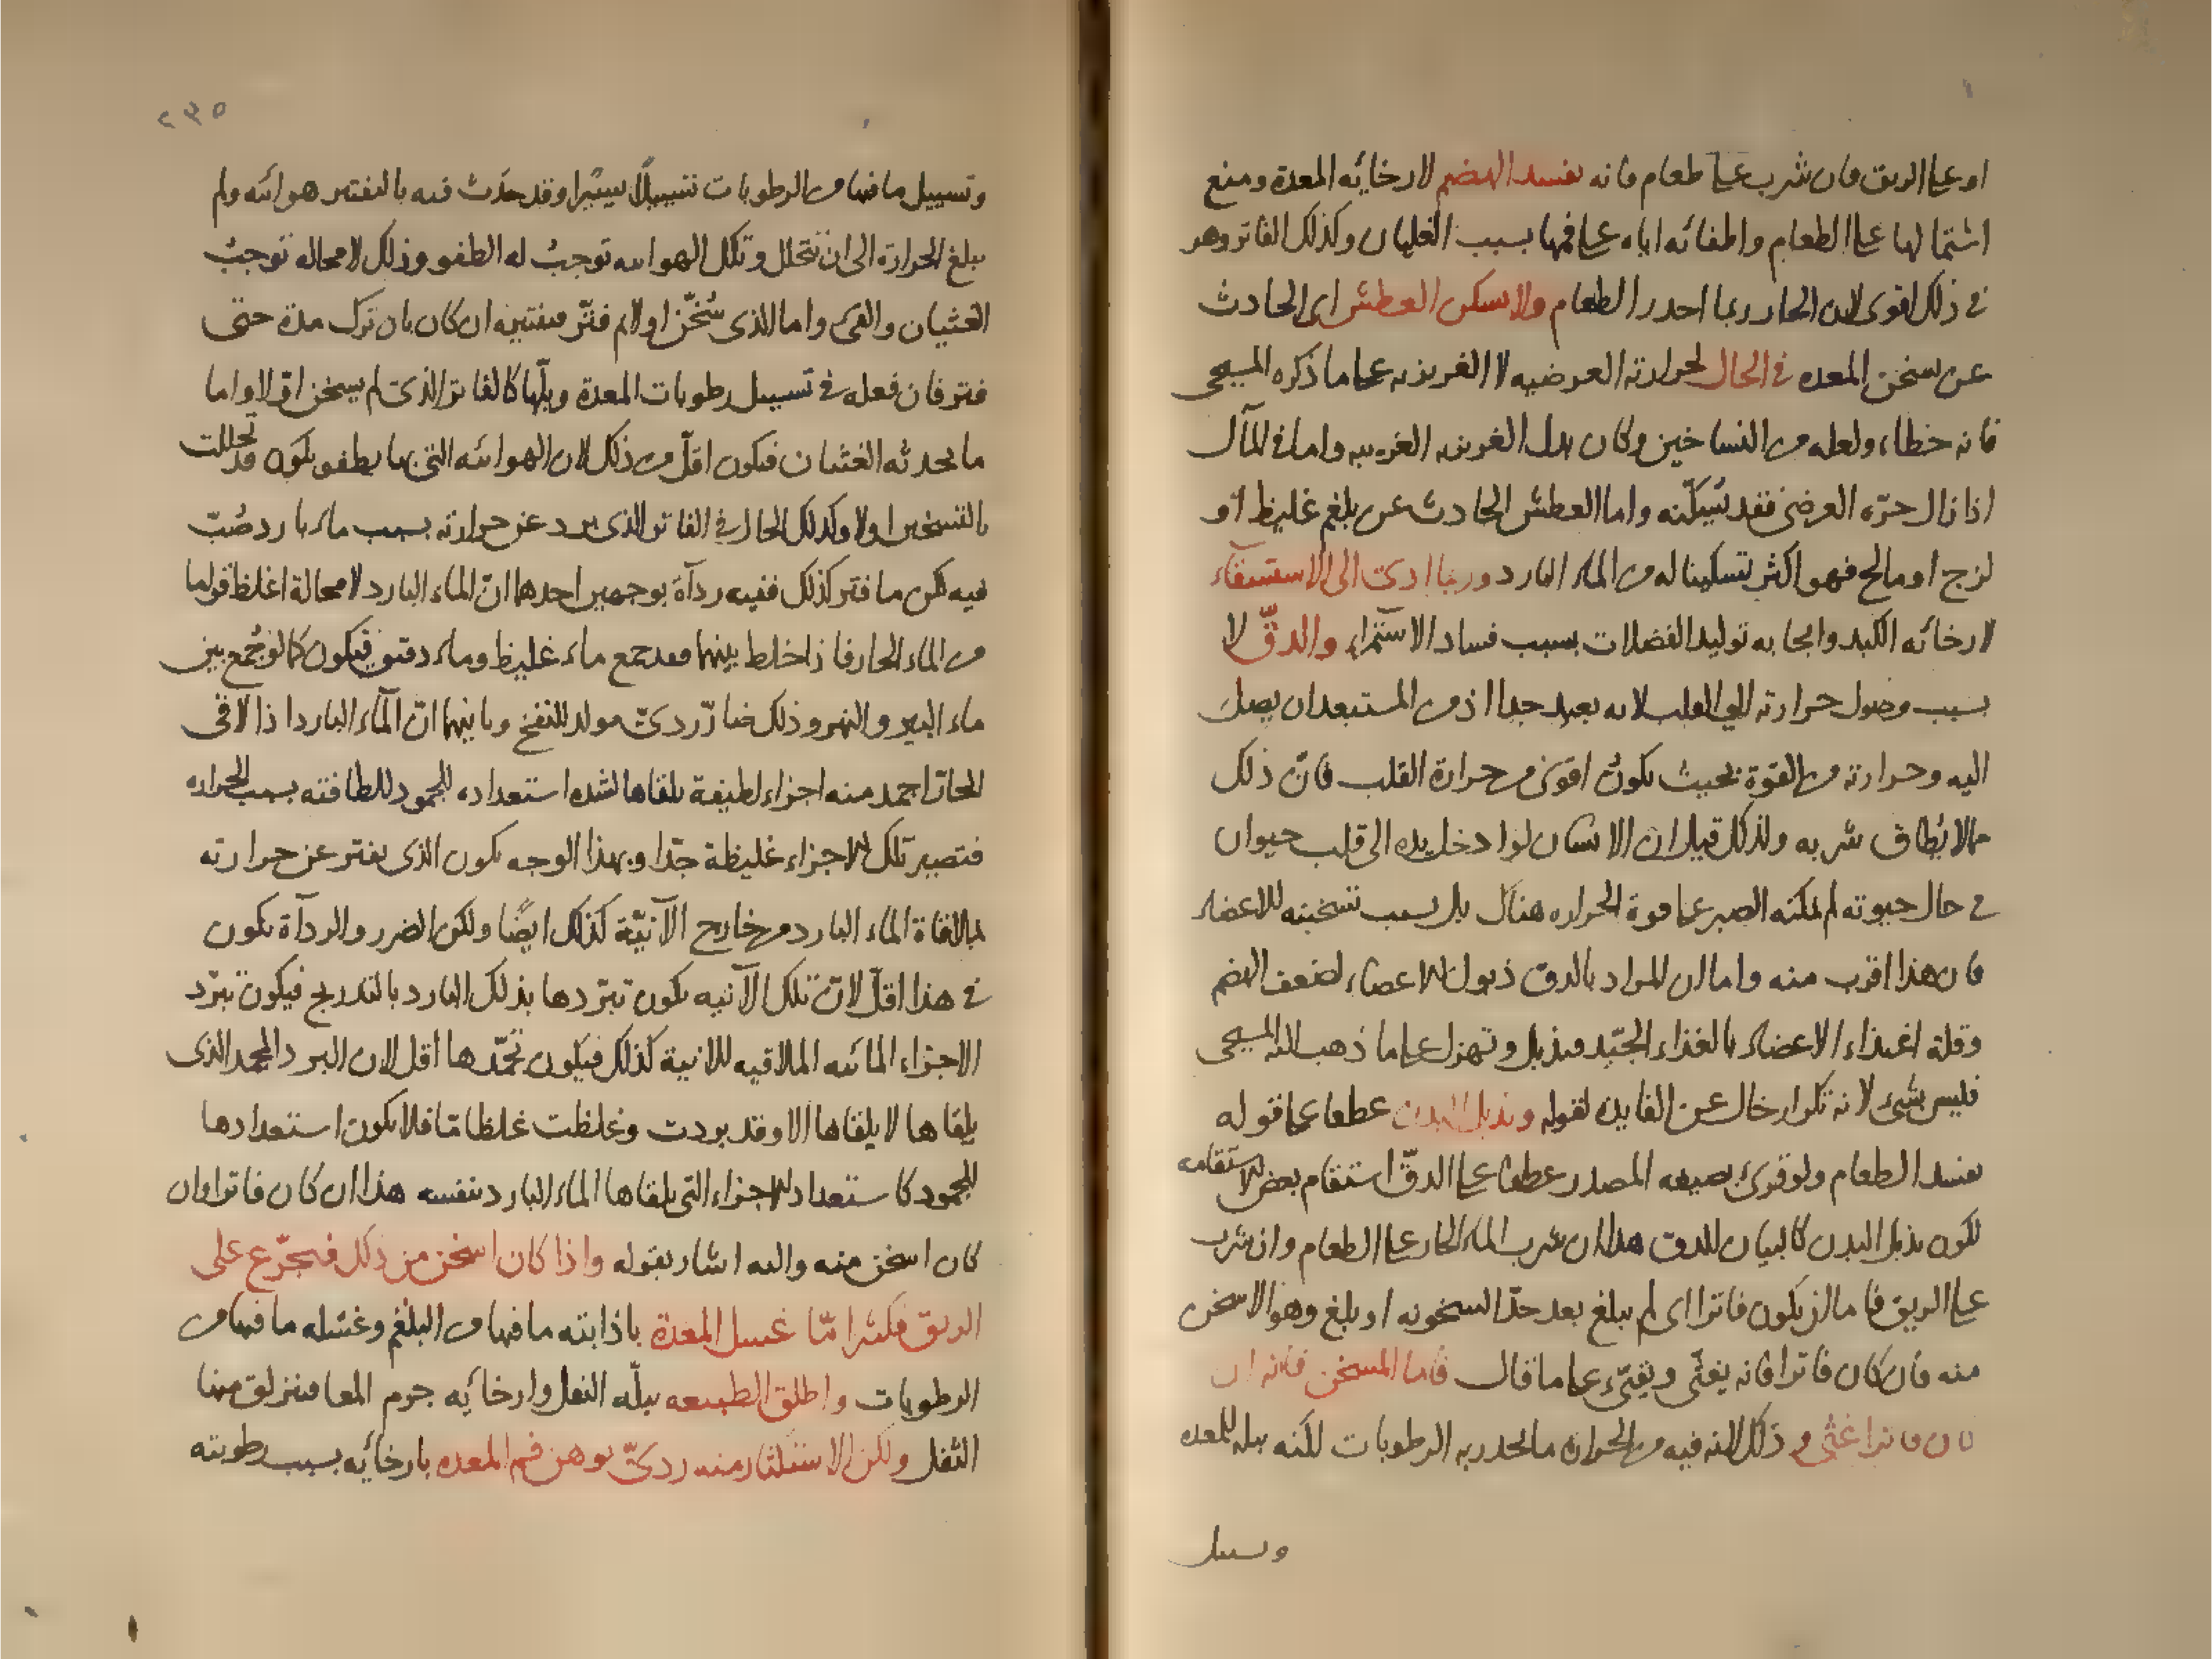 او على الريق فان شرب على طعام فانه يفسد الهضم لارخائه المعدة ومنع
اشتمالها على الطعام واطفائه اياه على فمها بسبب الغليان وكذلك الفاتر وهو
فى ذلك اقوى لان الحار ربما احدر الطعام ولا يسكن العطش اى الحادث
عن سخن المعده فى الحال لحرارته العرضيه لا الغريزيه على ما ذكره المسيحى
فانه خطاء ولعله من النساخين وكان بدل الغريزيه الغريبيه واما فى المآل
اذا زال حرّه العرضى فقد يُسكّنه واما العطش الحادث عن بلغم غليظ او
لزج او مالح فهو اكثر تسكينا له من الماء البارد وربما ادى الى الاستسقآء
لارخائه الكبد وايجابه توليد الفضلات بسبب فساد الاستمراء والدقّ لا
بسبب وصول حرارته الى القلب لانه بعيد جدا اذ من المستبعد ان يصل
اليه وحرارته من القوة بحيث يكون اقوى من حرارة القلب فانّ ذلك
مما لا يُطاق شربه ولذلك قيل ان الانسان لو ادخل يده الى قلب حيوان
فى حال حيوته لم يمكنه الصبر على قوة الحراره هناك بل بسبب تسخينه للاعضاء
فان هذا اقرب منه واما ان المراد بالدق ذبول الاعضاء لضعف الهضم
وقلة اغتذاء الاعضاء بالغذاء الجيّد فيذبل وتهزل على ما ذهب اليه المسيحى
فليس بشىء لانه تكرار خال عن الفايده لقوله ويذبل البدن عطفا على قوله
يفسد الطعام ولو قرئ بصيغه المصدر عطفا على الدقّ استقام بعض الاستقامه
لكون يذبل البدن كالبيان للدق هذا ان شرب الماء الحار على الطعام وان شرب
على الريق فاما ان يكون فاترا اى لم يبلغ بعد حدّ السخونه او بلغ وهو الاسخن
منه فان كان فاترا فانه يغثّى ويقيّء على ما قال فاما المسخن فانه ان
كان فاترا غثى و ذلك لانه فيه من الحرارة ما يحدر به الرطوبات لكنه يبله للمعده
وتسييل
٢٩٥
وتسييل ما فيها من الرطوبات تسييلا يسيرا وقد حدث فيه بالتفتير هوائيه ولم
يبلغ الحرارة الى ان تتحلل وتلك الهوائيه توجبُ له الطفو وذلك لا محاله توجبُ
الغثيان والقىء واما الذى سُخّن اولا ثم فتّر فتفتيره ان كان بان ترك مدة حتى
فتر فان فعله فى تسييل رطوبات المعدة وبلّها كالفاتر الذى لم يسخن اوّلا واما
ما يحدثه الغثيان فيكون اقلّ من ذلك لان الهوائيه التى بها يطفو يكون قد تحللت
بالتسخين اولا وكذلك الحال فى الفاتر الذى يبرد عن حرارته بسبب ماء بارد صُبّ
فيه لكن ما فتر كذلك ففيه ردآة بوجهين احدهما انّ الماء البارد لا محالة اغلظ قواما
من الماء الحار فاذا خلط بينهما فقد جمع ماء غليظ وماء دقيق فيكون كما لو جُمع بين
ماء البير والنهر وذلك ضارّ ردىّ مولد للنفخ وثانيهما انّ المآء البارد اذا لاقى
الحارّ اجمد منه اجزاء لطيفة يلقاها لشده استعداده للجمود للطافته بسبب الحراره
فتصير تلك الاجزاء غليظة جدّا وبهذا الوجه يكون الذى يفتر عن حرارته
بملاقاة الماء البارد من خارج الآنيّة كذلك ايضًا ولكن الضرر والردآة يكون
فى هذا اقلّ لانّ تلك الآنيه يكون تبرّدها بذلك البارد بالتدريج فيكون تبرّد
الاجزاء المائيه الملاقيه للانية كذلك فيكون تجمّدها اقل لان البرد المجمد الذى
يلقاها لا يلقاها الا وقد بردت وغلظت غلظا مّا فلا يكون استعدادها
للجمود كاستعداد الاجزاء التى يلقاها الماء البارد بنفسه هذا ان كان فاترا وان
كان اسخن منه واليه اشار بقوله واذا كان اسخن من ذلك فتجرّع على
الريق فكثيرا مّا غسل المعدة باذابته ما فيها من البلغم وغسله ما فيها من
الرطوبات واطلق الطبيعه ببلّه الثفل وارخائه جرم المعا فينزلق منها
الثفل ولكن الاستكثار منه ردىّ يوهن فم المعده بارخائه بسبب رطوبته